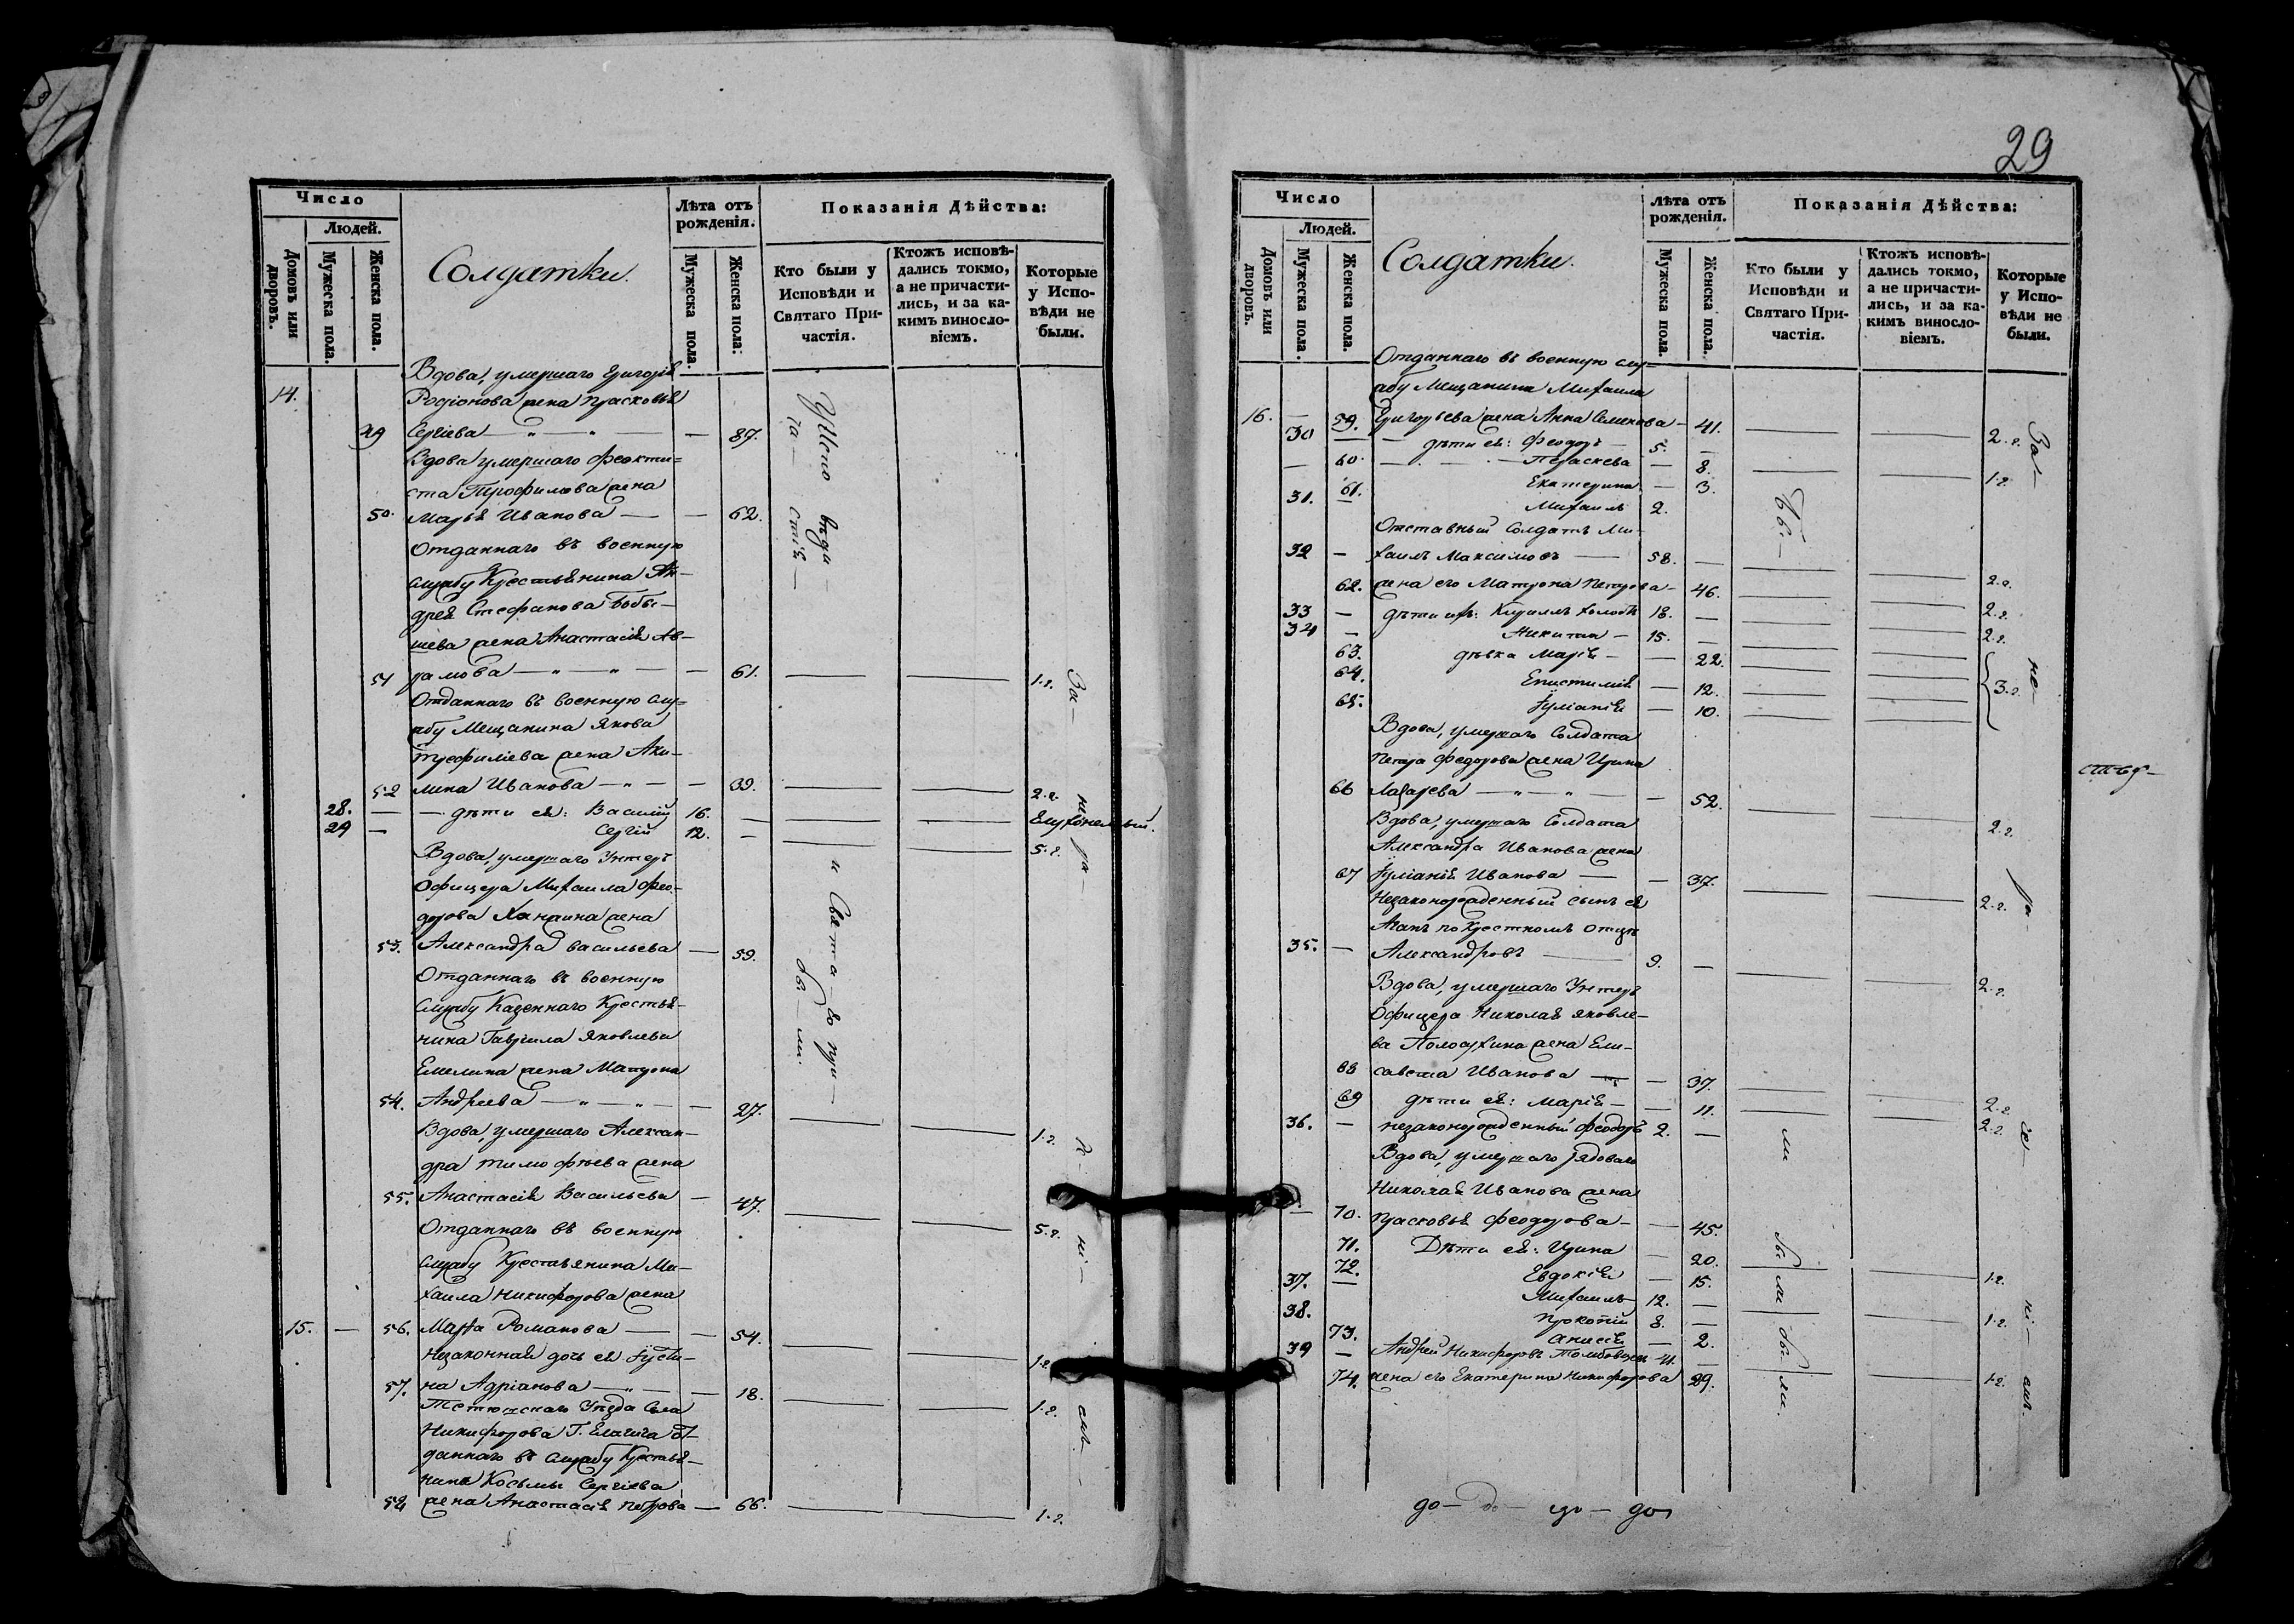 29
Число
Людей.
Домовъ или дворовъ.
Мужеска пола.
Женска пола.
Солдатки.
Лѣта отъ рожденія.
Мужеска пола.
Женска пола:
Показанія Дѣйства:
Кто были у Исповѣди и Святаго Причастія.
Ктожъ исповѣдались токмо, а не причастились, и за какимъ винословіемъ.
Которые у Исповѣди не были.
Вдова, умершаго Григорія
14. Родіонова жена Прасковья
49 Сергіева — „ — „ — — 87.
Вдова умершаго Феокти=
ста Трофимова жена
50. Марья Иванова — — 62.
Отданнаго въ военную
службу Крестьянина Ан-
дрея Стефанова Бобы-
шева жена Анастасія Ав-
51 рамова — „ — „ — 61. 1.г.
Отданнаго въ военную слу=
жбу Мещанина Якова
Трефиліева жена Аку-
52 лина Иванова — „ — — 39. 2.г.
28. — — дѣти ея: Василій 16. — Глухонемый.
29 — Сергій 12. — 5.г.
Вдова, умершаго Унтеръ
Офицера Михаила Фео-
дорова жена
53. Александра Васильева — 59.
Отданнаго въ военную
службу Казеннаго Крестья-
нина Гаврила Яковлева
Емелина жена Матрона
54. Андреева — „ — „ — — 27. 1.г.
Вдова, умершаго Алексан-
дра Тимофѣева жена
55. Анастасія Васильева — 47. 5.г.
Отданнаго въ военную
службу Крестьянина Ми-
хаила Никифорова жена
15. — 56. Марѳа Романова — — 54. 1.г.
Незаконная дочь ея Іусти-
57. на Адріанова — „ — — 18. 1.г.
Тетюшскаго Уѣзда Села
Никифорова Г. Елагина от-
даннаго въ службу Крестья-
нина Косьмы Сергіева
58 жена Анастасія Петрова — 66. 1.г.
Число
Людей.
Домовъ или дворовъ.
Мужеска пола.
Женска пола.
Солдатки.
Лѣта отъ рожденія.
Мужеска пола.
Женска пола.
Показанія Дѣйства:
Кто были у Исповѣди и Святаго Причастія.
Ктожъ исповѣдались токмо, а не причастились, и за какимъ винословіемъ.
Которые у Исповѣди не были.
Отданнаго въ военную слу=
жбу Мещанина Михаила
16. — 59. Григорьева жена Анна Семенова — 41. 2.г.
30 — — дѣти ея: Феодоръ — 5. —
— 60. — Параскева — 8. 1.г.
61. Екатерина — 3.
31. — Михаилъ 2.
Отставный Солдатъ Ми-
32 — хаилъ Максимовъ — 58. — 2.г.
62. жена его Матрона Петрова — 46. 2.г.
33 — дѣти ихъ: Кириллъ холостъ 18. — 2.г.
34 — Никита — 15. —
63. дѣвка Марія — — 22.
64. Епистимія — 12. 3.г.
65. Іуліанія — 10.
Вдова, умершаго Солдата
Петра Федорова жена Ирина
66 Лазарева — „ — „ — — 52. 2.г.
Вдова, умершаго Солдата
Александра Иванова жена
67 Іуліанія Иванова — — 37. 2.г.
Незаконорожденный сынъ ея
по крестномъ отцѣ
35. — Александровъ — 9. — 2.г.
Вдова, умершаго Унтеръ
Офицера Николая Яковле-
ва жена Ели-
68 савета Иванова — — 37. 2.г.
69 дѣти ея: Марія — — 11. 2.г.
36. — незаконорожденный Феодоръ 2. —
Вдова, умершаго рядоваго
Николая Иванова жена
— 70. Прасковья Феодорова — — 45. 1.г.
71. Дѣти ея: Ирина — 20.
72. Евдокія — 15. 1.г.
37. — Михаилъ 12. —
38. Прокопій 8. —
73. Анисія — 2. 1.г.
39 — Андрей Никифоровъ 41. —
74. жена его Екатерина Никифорова 29.
до — до — до — до